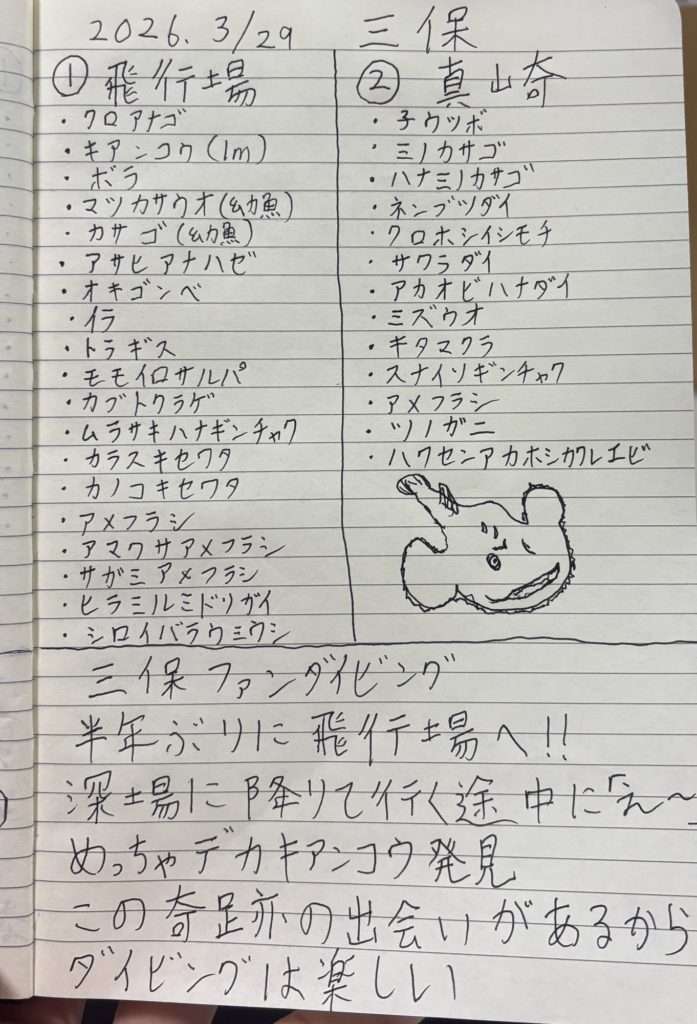 2026.3/29 三保
① 飛行場
・クロアナゴ
・キアンコウ(1m)
・ボラ
・マツカサウオ(幼魚)
・カサゴ(幼魚)
・アサヒアナハゼ
・オキゴンベ
・イラ
・トラギス
・モモイロサルパ
・カブトクラゲ
・ムラサキハナギンチャク
・カラスキセワタ
・カノコキセワタ
・アメフラシ
・アマクサアメフラシ
・サガミアメフラシ
・ヒラミルミドリガイ
・シロイバラウミウシ
② 真崎
・子ウツボ
・ミノカサゴ
・ハナミノカサゴ
・ネンブツダイ
・クロホシイシモチ
・サクラダイ
・アカオビハナダイ
・ミズウオ
・キタマクラ
・スナイソギンチャク
・アメフラシ
・ツノガニ
・ハクセンアカホシカクレエビ
三保ファンダイビング
半年ぶりに飛行場へ!!
深場に降りて行く途中に「え〜」
めっちゃデカキアンコウ発見
この奇跡の出会いがあるから
ダイビングは楽しい